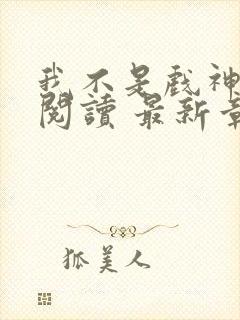 我不是戲神
閱讀 最新章
狐美人